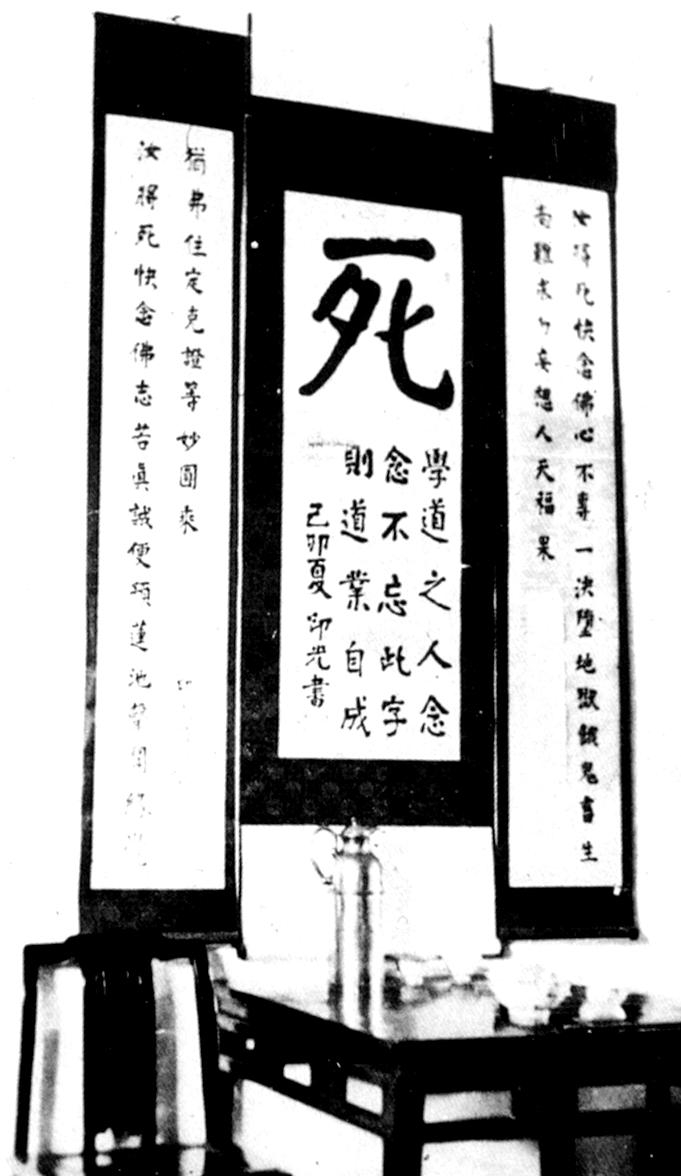 汝將死快念佛心不專一決墮地獄餓鬼畜生
尚難求勿妄想人天福果
死
學道之人念
念不忘此字
則道業自成
己卯夏印光書
汝將死快念佛志若眞誠便預蓮池聲聞緣覺
猶弗住定克證等妙圓乘